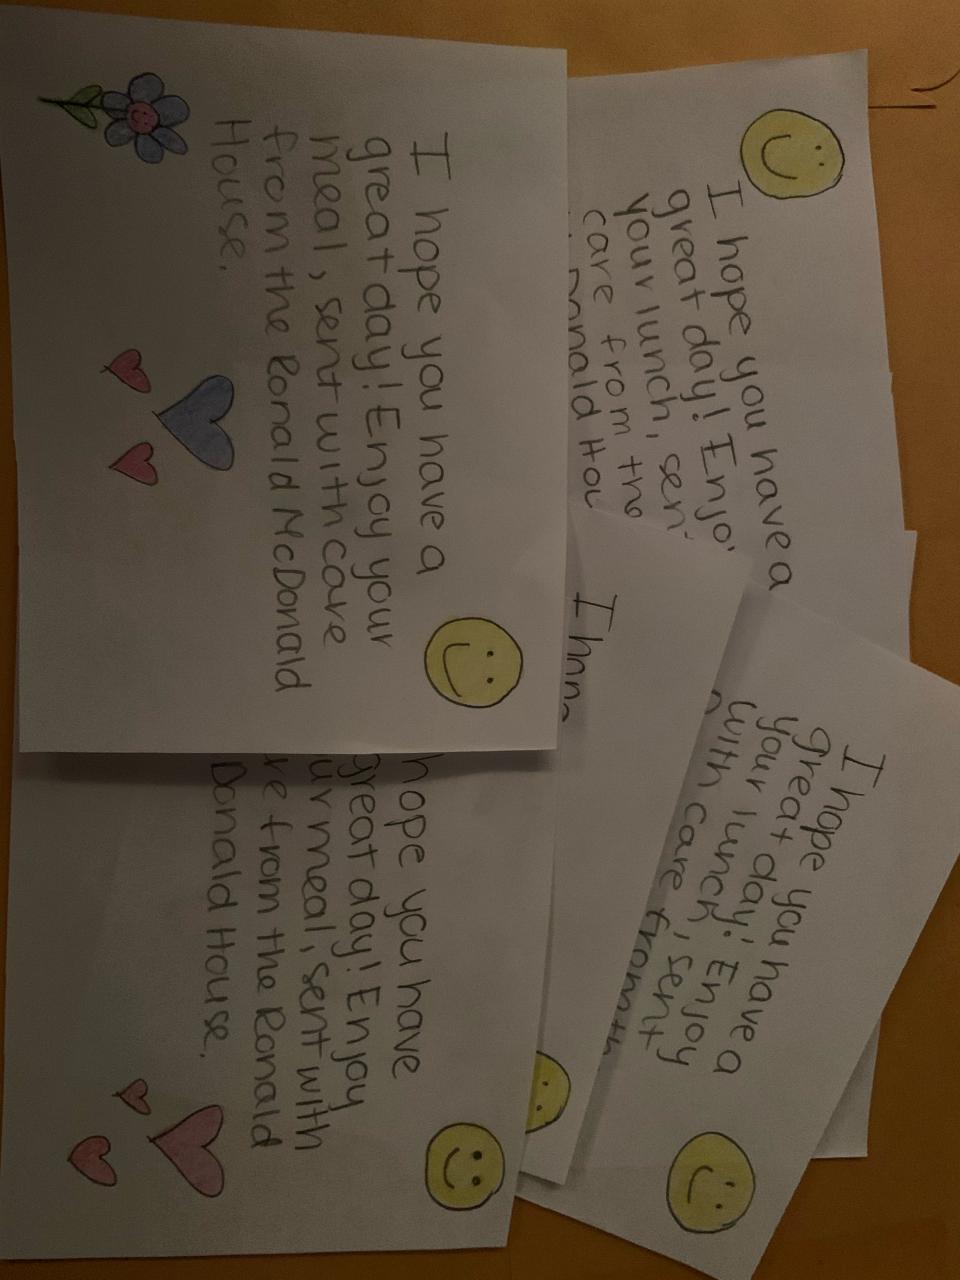 I hope you have a
great day! Enjoy your
meal, sent with care
from the Ronald McDonald
House.
I hope you have a
great day! Enjoy
your lunch, sent
care from the
Donald Hou
hope you have
great day! Enjoy
ur meal, sent with
re from the Ronald
Donald House.
I hope
I hope you have a
great day! Enjoy
your lunch, sent
with care from th